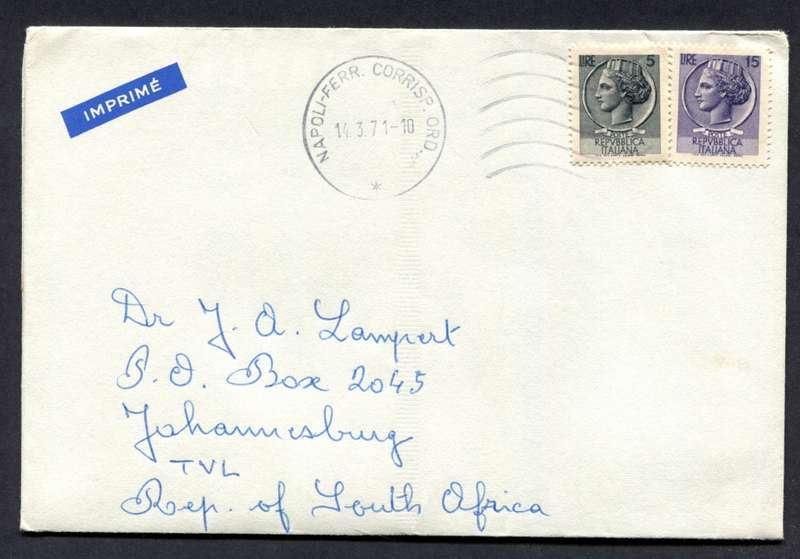 IMPRIMÉ
NAPOLI-FERR. CORRISP. ORD.
14.3.71-10
*
LIRE 5
POSTE
REPVBBLICA
ITALIANA
LIRE 15
POSTE
REPVBBLICA
ITALIANA
Dr J. A. Lampert
P.O. Box 2045
Johannesburg
TVL
Rep. of South Africa